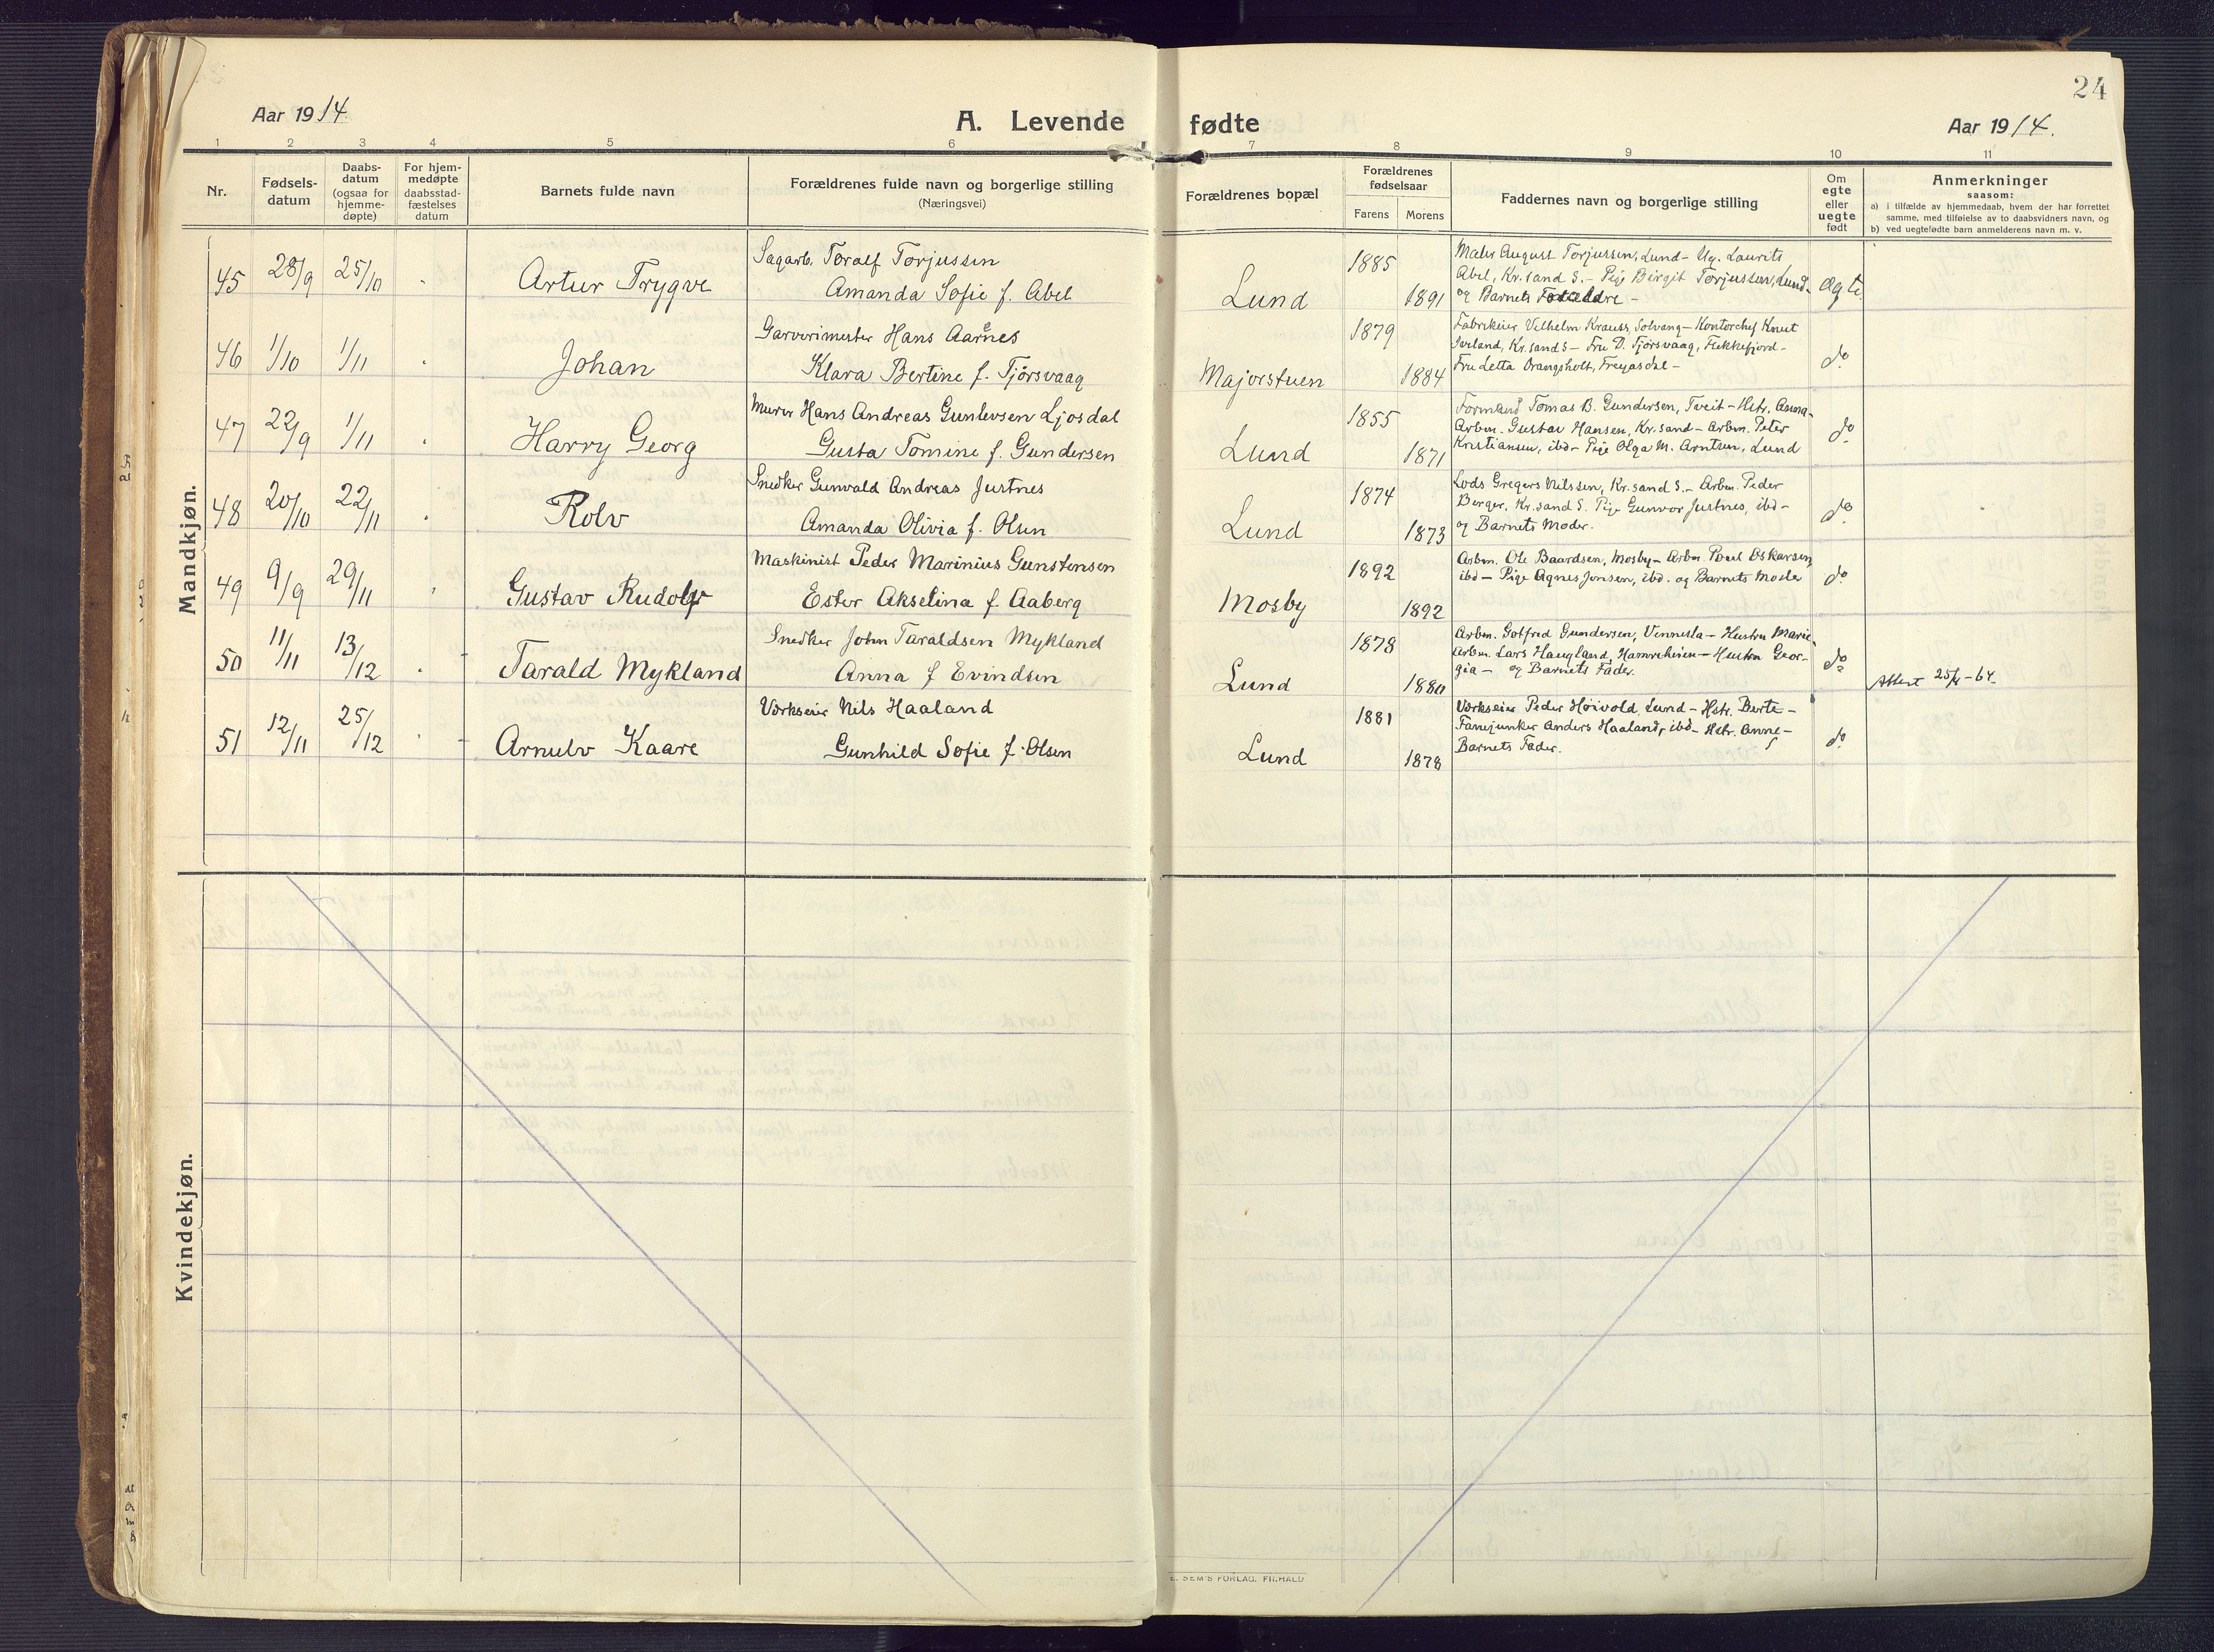 24
Aar 1914
A. Levende fødte
Aar 1914.
1 2 3 4 5 6 7 8 9 10 11
Nr.
Fødsels-
datum
Daabs-
datum
(ogsaa for
hjemme-
døpte)
For hjem-
medøpte
daabsstad-
fæstelses
datum
Barnets fulde navn
Forældrenes fulde navn og borgerlige stilling
(Næringsvei)
Forældrenes bopæl
Forældrenes
fødselsaar
Farens Morens
Faddernes navn og borgerlige stilling
Om
egte
eller
uegte
født
Anmerkninger
saasom:
a) i tilfælde av hjemmedaab, hvem der har forrettet
samme, med tilføielse av to daabsvidners navn, og
b) ved uegtefødte barn anmelderens navn m. v.
Mandkjøn.
45 28/9 25/10 Artur Trygve
Sagarb. Toralf Torjussen
Amanda Sofie f. Abel
Lund 1885 1891
Maler August Torjussen, Lund - Ug. Laurits
Abel, Kr.sand S. - Pige Birgit Torjussen, Lund -
og Barnets Forældre -
Ægte
46 1/10 1/11 Johan
Garverimester Hans Aarnes
Klara Bertine f. Tjörsvaag
Majorstuen 1879 1884
Fabrikeier Vilhelm Krauss, Solvang - Kontorchef Knut
Iveland, Kr.sand S - Fru D. Tjörsvaag, Flekkefjord -
Fru Letta Orangsholt, Freyasdal -
do
47 22/9 1/11 Harry Georg
Murer Hans Andreas Gunlevsen Ljosdal
Gusta Tomine f. Gundersen
Lund 1855 1871
Formand Tomas B. Gundersen, Tveit - Hstr. Anna -
Arbm. Gustav Hansen, Kr.sand - Arbm. Peter
Kristiansen, ibd - Pige Olga M. Arntsen, Lund
do
48 20/10 22/11 Rolv
Snedker Gunvald Andreas Justnes
Amanda Olivia f. Olsen
Lund 1874 1873
Lods Gregers Nilssen, Kr.sand S. - Arbm. Peder
Berger, Kr.sand S. Pige Gunvor Justnes, ibd -
og Barnets Moder.
do
49 9/9 29/11 Gustav Rudolf
Maskinist Peder Marinius Gunstensen
Ester Akselina f. Aaberg
Mosby 1892 1892
Arbm. Ole Baardsen, Mosby - Arbm Poul Oskarsen,
ibd - Pige Agnes Jensen, ibd. og Barnets Moder
do
50 11/11 13/12 Tarald Mykland
Snedker John Taraldsen Mykland
Anna f Evindsen
Lund 1878 1880
Arbm. Gotfred Gundersen, Vennesla - Hustru Marie -
Arbm. Lars Haugland, Hamreheien - Hustru Geor-
gia - og Barnets Fader.
do
Attest 25/4 - 64
51 12/11 25/12 Arnulv Kaare
Værkseier Nils Haaland
Gunhild Sofie f. Olsen
Lund 1881 1878
Værkseier Peder Höivold, Lund - Hstr. Berte -
Fanejunker Anders Haaland, ibd - Hstr. Anne -
Barnets Fader.
do
Kvindekjøn.
E. SEM'S FORLAG, FR.HALD